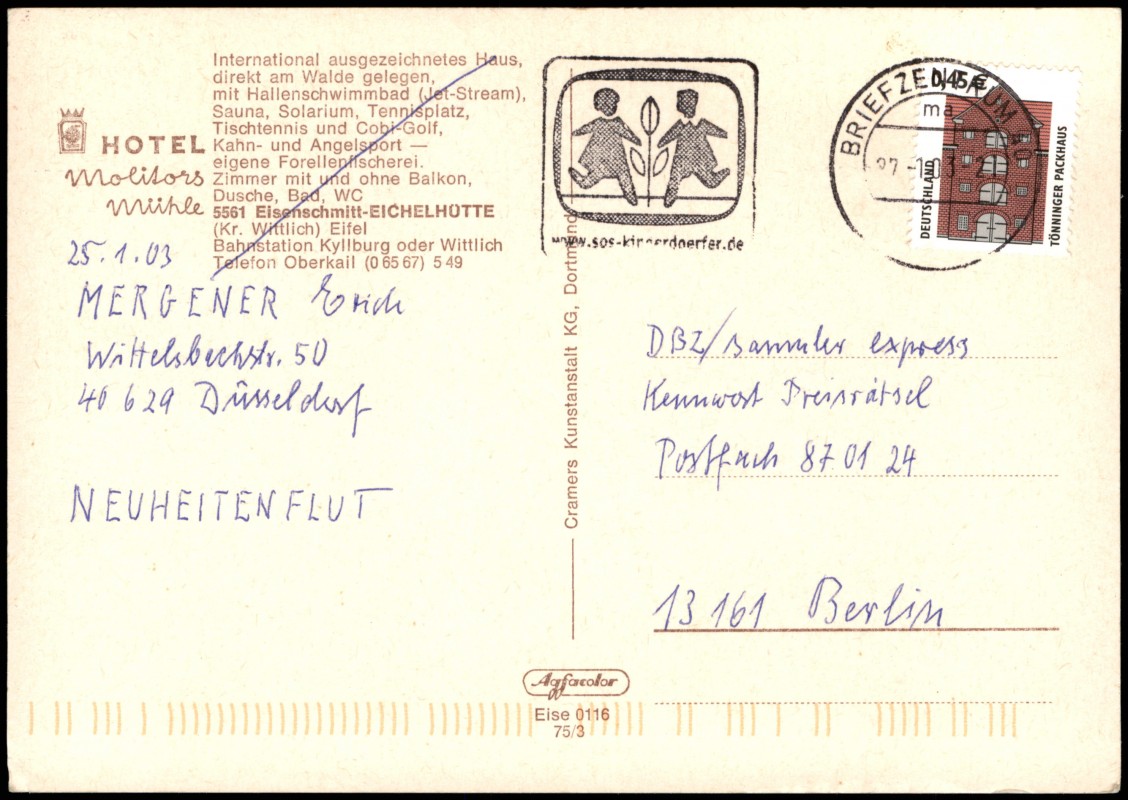 International ausgezeichnetes Haus,
direkt am Walde gelegen,
mit Hallenschwimmbad (Jet-Stream),
Sauna, Solarium, Tennisplatz,
Tischtennis und Cobi-Golf,
Kahn- und Angelsport —
eigene Forellenfischerei.
Zimmer mit und ohne Balkon,
Dusche, Bad, WC
5561 Eisenschmitt-EICHELHÜTTE
(Kr. Wittlich) Eifel
Bahnstation Kyllburg oder Wittlich
Telefon Oberkail (0 65 67) 5 49
HOTEL
Molitors
Mühle
25.1.03
MERGENER Erich
Wittelsbachstr. 50
40629 Düsseldorf
NEUHEITENFLUT
Cramers Kunstanstalt KG, Dortmund
www.sos-kinderdoerfer.de
BRIEFZENTRUM 40
ma
0,45 €
DEUTSCHLAND
TÖNNINGER PACKHAUS
DBZ/sammler express
Kennwort Preisrätsel
Postfach 87 01 24
13161 Berlin
Agfacolor
Eise 0116
75/3